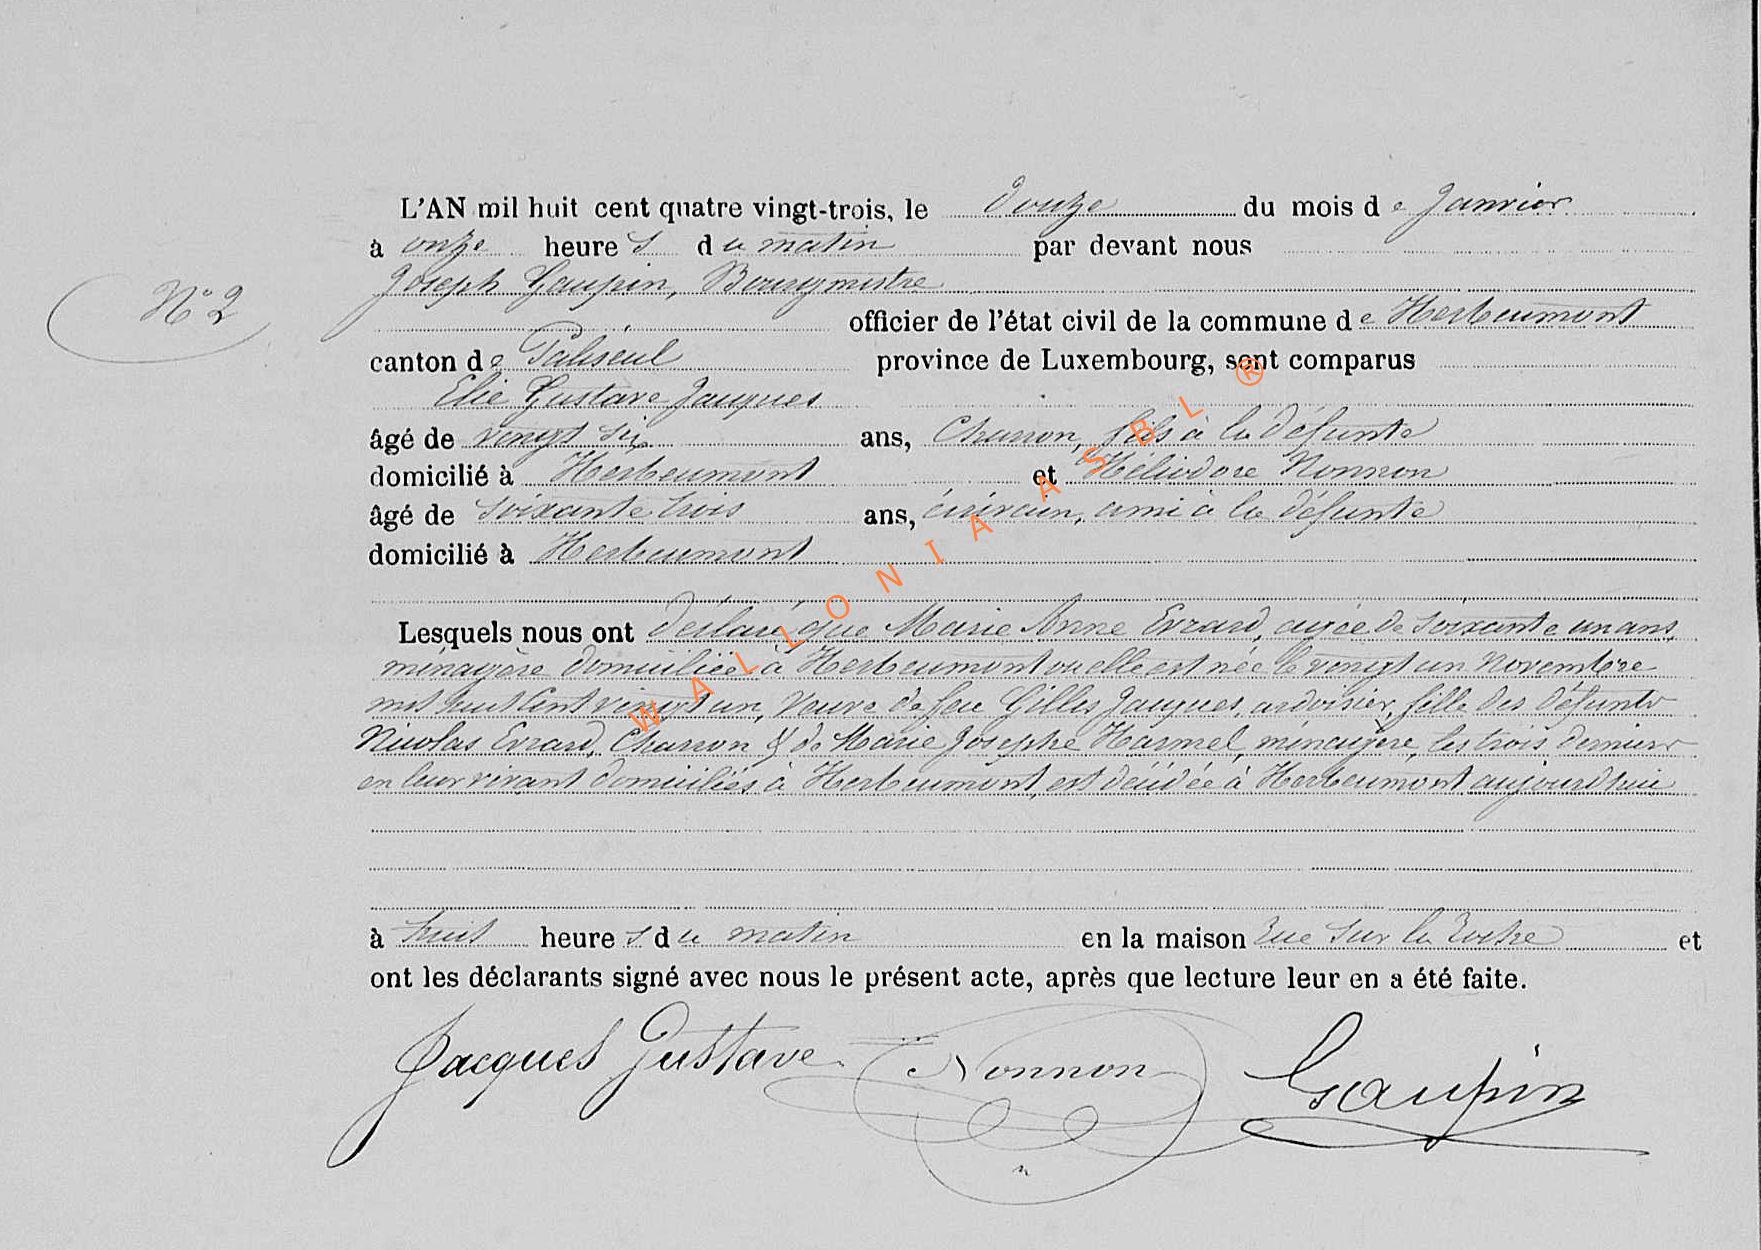 L'AN mil huit cent quatre vingt-trois, le douze du mois de Janvier
à onze heures du matin par devant nous
N° 2
Joseph Gaupin, Bourgmestre
officier de l'état civil de la commune de Herbeumont
canton de Paliseul province de Luxembourg, sont comparus
Elie Gustave Jacques
âgé de vingt six ans, Charron, fils à la défunte
domicilié à Herbeumont et Héliodore Nonnon
âgé de soixante trois ans, écrivain, ami à la défunte
domicilié à Herbeumont
Lesquels nous ont déclaré que Marie Anne Evrard, agée de soixante un ans,
ménagère domiciliée à Herbeumont ou elle est née le vingt un Novembre
mil huit Cent vingt un, Veuve de feu Gilles Jacques, ardoisier, fille des défunts
Nicolas Evrard, Charron & de Marie Josephe Harmel, ménagère, les trois derniers
en leur vivant domiciliés à Herbeumont, est décédée à Herbeumont aujourd'hui
à huit heures du matin en la maison rue sur la Roche et
ont les déclarants signé avec nous le présent acte, après que lecture leur en a été faite.
Jacques Gustave Nonnon Gaupin
WALLONIA ASBL ®